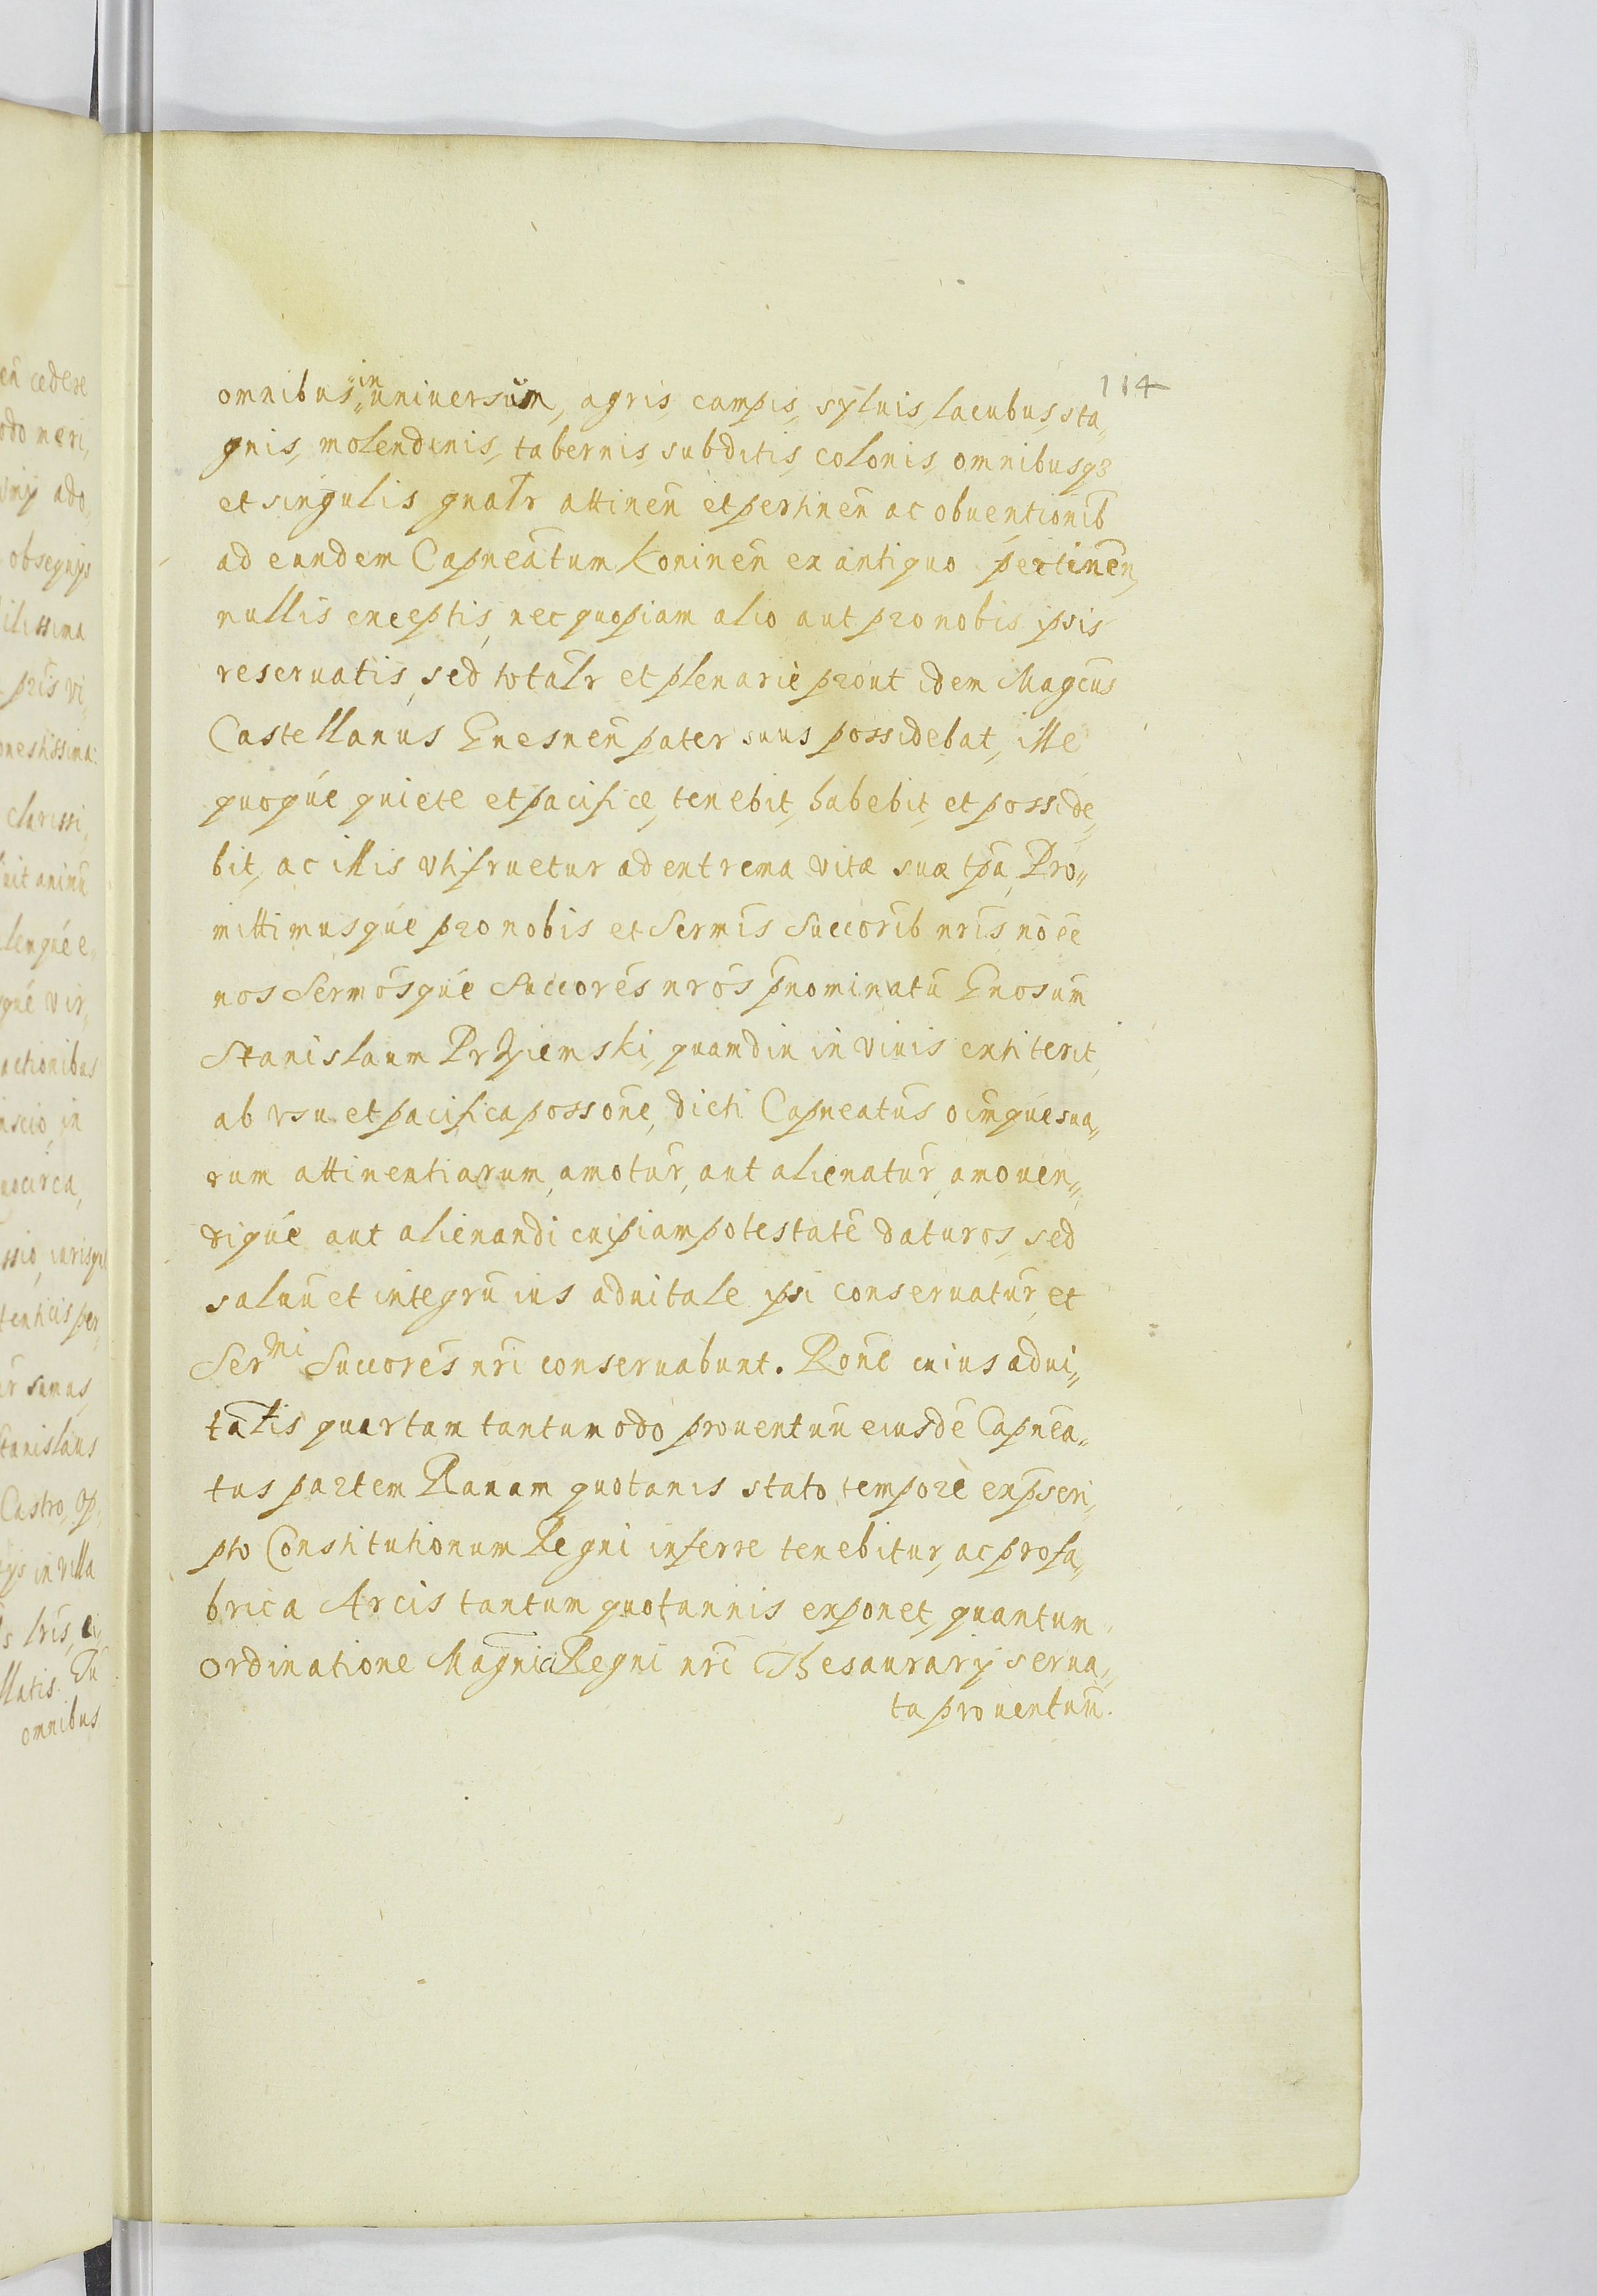 114
omnibus in uniuersum, agris, campis, syluis, lacubus, sta„
gnis, molendinis, tabernis, subditis, colonis, omnibusqȝ
et singulis gnalr attineñ et pertineñ ac obuentionib
ad eundem Capneatum Konineñ ex antiquo pertineñ,
nullis exceptis, nec quopiam alio aut pro nobis ipsis
reseruatis, sed totalr et plenariè prout idem Magcus
Castellanus Gnesneñ pater suus possidebat, ille
quoque quiete et pacifice, tenebit, habebit, et posside„
bit, ac illis vtifruetur ad extrema vitæ suæ tpa, Pro„
mittimusque pro nobis et Sermis Succorib nris, nō ee
nos Sermosque Succores nros pnominatū Gnosum
Stanislaum Przyiemski, quamdiu in viuis extiterit,
ab vsu et pacifica possone, dicti Capneatus oīmque sua„
rum attinentiarum, amotur, aut alienatur, amouen„
dique aut alienandi cuipiam potestatē daturos, sed
saluū et integrū ius aduitale ipsi conseruatur, et
Ser^mi Succores nri conseruabunt. Rone cuius adui„
talis quartam tantumodo prouentuū eiusdē Capnea„
tus partem Rauam quotanis stato tempore ex pscri„
pto Constitutionum Regni inferre tenebitur, ac pro fa„
brica Arcis tantum quotannis exponet, quantum
ordinatione Magnici Regni nri Thesaurarij serua„
ta prouentuū.
en cedere
obsequijs
clarissi„
actionibus
Stanislaus
Castro,
in villa
omnibus